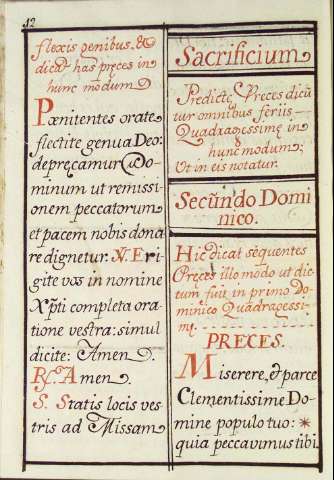 12
flexis genibus. &
dicat has pręces in
hunc modum
Pœnitentes orate
flectite genua Deo:
depręcamur Do-
minum ut remissi-
onem peccatorum
et pacem nobis dona
re dignetur. V. Eri-
gite vos in nomine
Xp̄ti completa ora-
tione vestra: simul
dicite: Amen.
R. Amen.
S. Statis locis ves-
tris ad Missam
Sacrificium
Predictę Pręces dicū
tur omnibus feriis
Quadragessimę in
hunc modum;
Ut in eis notatur.
Secūndo Domi
nico.
Hic dicat sequentes
Pręces illo modo ut dic-
tum fuit in primo Do-
minico Quadragessi-
mę.
PRECES.
Miserere, & parce
Clementissime Do-
mine populo tuo: *
quia peccavimus tibi.